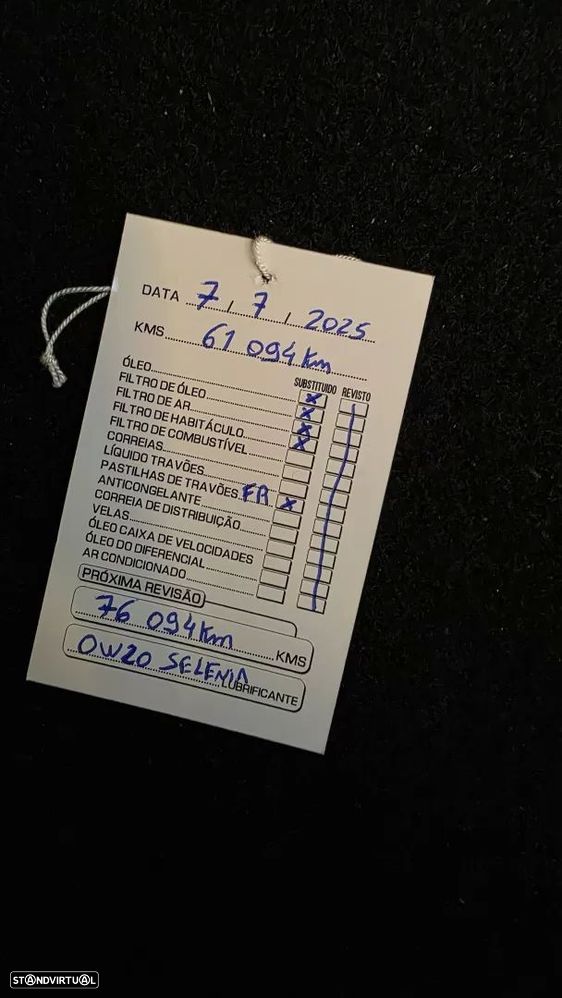 DATA 7 / 7 / 2025
KMS 61 094 Km
SUBSTITUIDO REVISTO
ÓLEO X
FILTRO DE ÓLEO X
FILTRO DE AR X
FILTRO DE HABITÁCULO X
FILTRO DE COMBUSTÍVEL
CORREIAS
LÍQUIDO TRAVÕES
PASTILHAS DE TRAVÕES FR X
ANTICONGELANTE
CORREIA DE DISTRIBUIÇÃO
VELAS
ÓLEO CAIXA DE VELOCIDADES
ÓLEO DO DIFERENCIAL
AR CONDICIONADO
PRÓXIMA REVISÃO
76 094 Km KMS
0W20 SELENIA LUBRIFICANTE
STANDVIRTUAL